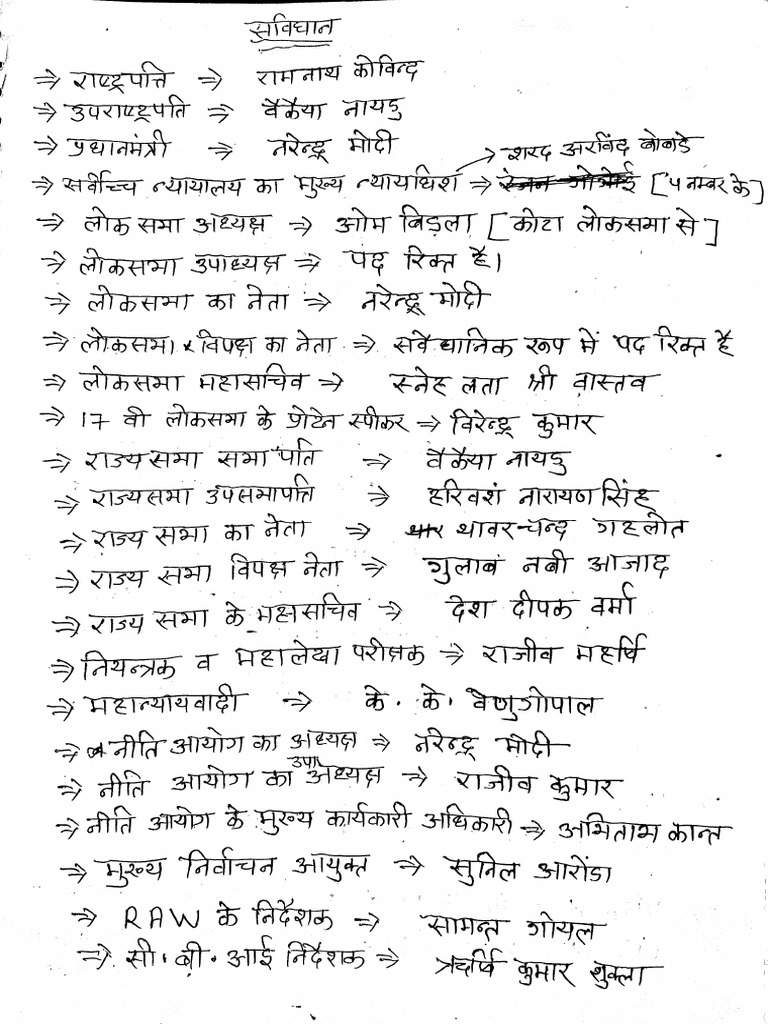 सविधान
⇒ राष्ट्रपति ⇒ रामनाथ कोविन्द
⇒ उपराष्ट्रपति ⇒ वैकैया नायडु
⇒ प्रधानमंत्री ⇒ नरेन्द्र मोदी
→ शरद अरविंद बोबडे
⇒ सर्वोच्च न्यायालय का मुख्य न्यायधिश ⇒ रंजन गोगोई [ 4 नम्बर के ]
⇒ लोक सभा अध्यक्ष ⇒ ओम बिड़ला [ कोटा लोकसभा से ]
⇒ लोकसभा उपाध्यक्ष ⇒ पद रिक्त है।
⇒ लोकसभा का नेता ⇒ नरेन्द्र मोदी
⇒ लोकसभा विपक्ष का नेता ⇒ सवैधानिक रूप में पद रिक्त है
⇒ लोकसभा महासचिव ⇒ स्नेह लता श्री वास्तव
⇒ 17 वी लोकसभा के प्रोटेन स्पीकर ⇒ विरेन्द्र कुमार
⇒ राज्यसभा सभापति ⇒ वैकैया नायडु
⇒ राज्यसभा उपसभापति ⇒ हरिवशं नारायण सिंह
⇒ राज्य सभा का नेता ⇒ थावरचन्द गहलोत
⇒ राज्य सभा विपक्ष नेता ⇒ गुलाब नबी आजाद
⇒ राज्य सभा के महासचिव ⇒ देश दीपक वर्मा
⇒ नियन्त्रक व महालेखा परीक्षक ⇒ राजीव महर्षि
⇒ महान्यायवादी ⇒ के. के. वेणुगोपाल
⇒ नीति आयोग का अध्यक्ष ⇒ नरेन्द्र मोदी
⇒ नीति आयोग का उपाअध्यक्ष ⇒ राजीव कुमार
⇒ नीति आयोग के मुख्य कार्यकारी अधिकारी ⇒ अमिताभ कान्त
⇒ मुख्य निर्वाचन आयुक्त ⇒ सुनिल आरोडा
⇒ RAW के निर्देशक ⇒ सामन्त गोयल
⇒ सी. बी. आई निर्देशक ⇒ ऋर्षि कुमार शुक्ला